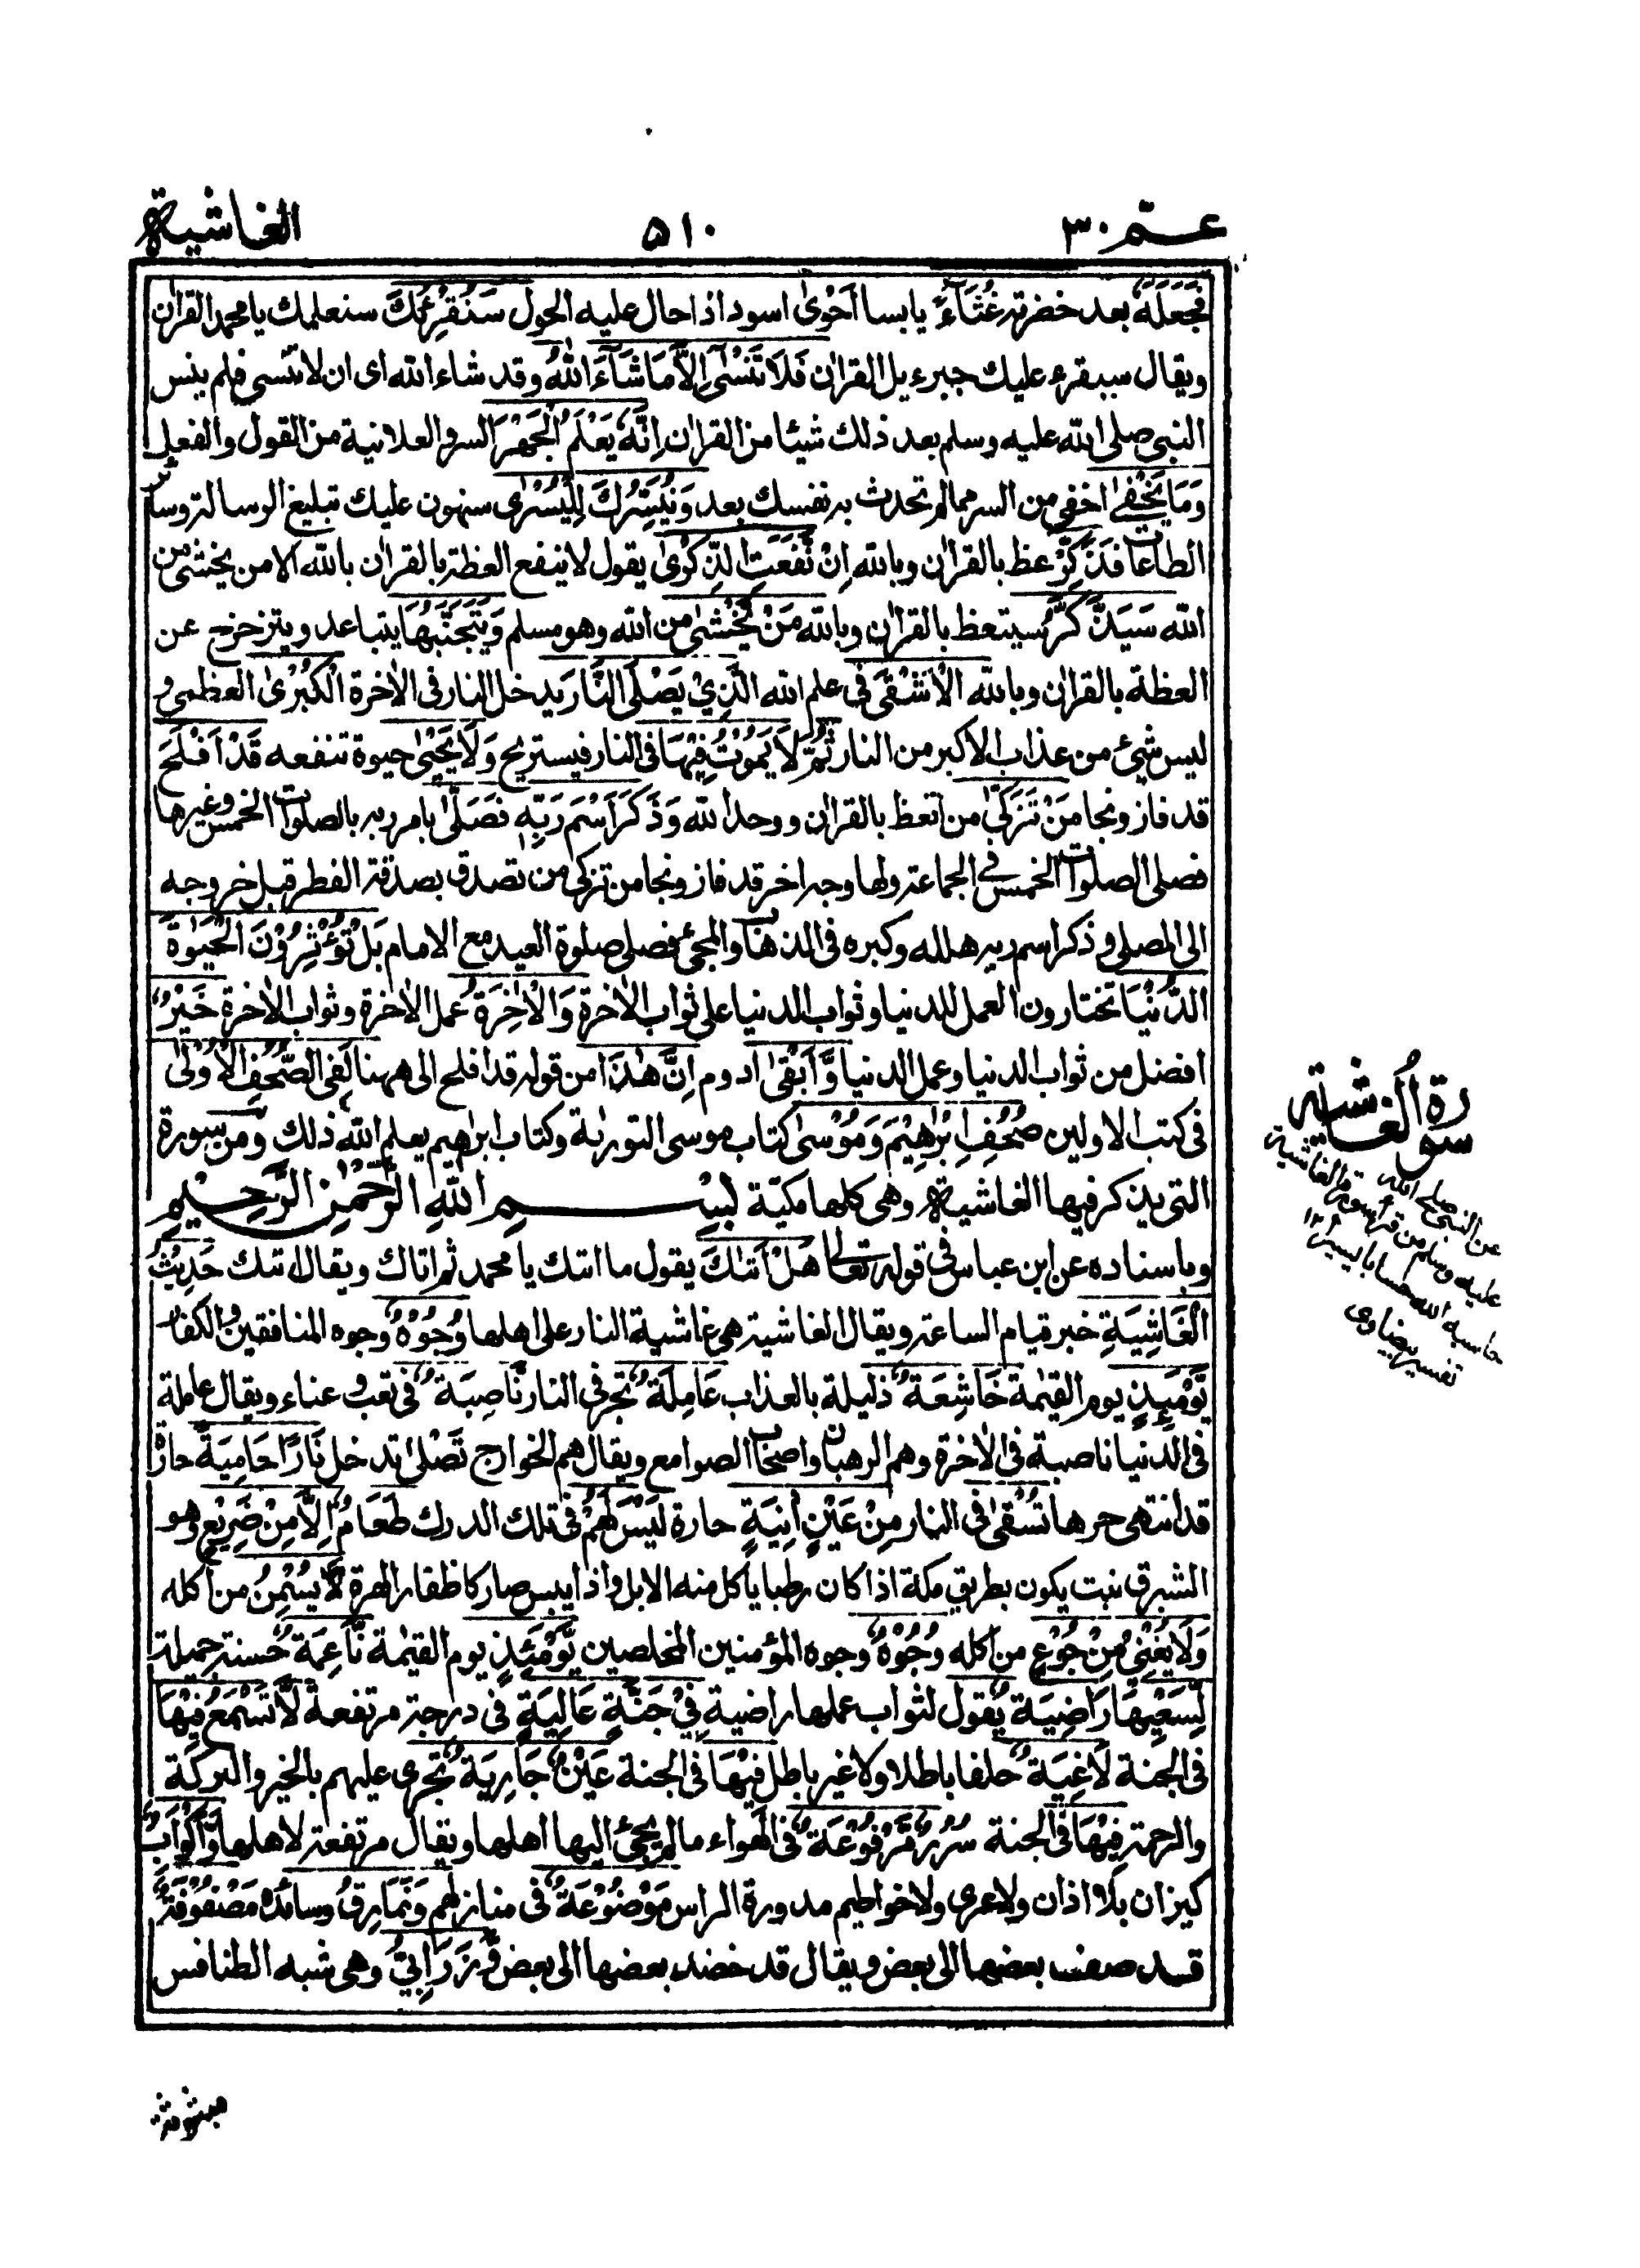 عـمّ ٣٠
٥١٠
الغاشية
فَجَعَلَهٗ بعد خضرته غُثَآءً يابسا اَحْوٰى اسود اذا حال عليه الحول سَنُقْرِئُكَ سنعلمك يا محمد القراٰن
ويقال سيقرء عليك جبرءيل القراٰن فَلَا تَنْسٰٓى اِلَّا مَا شَآءَ اللّٰهُ وقد شاء الله اى ان لا تنسى فلم ينس
النبى صلى الله عليه وسلم بعد ذلك شيئا من القراٰن اِنَّهٗ يَعْلَمُ الْجَهْرَ السر والعلانية من القول والفعل
وَمَا يَخْفٰى اخفى من السر مما لم تحدث به نفسك بعد وَنُيَسِّرُكَ لِلْيُسْرٰى سنهون عليك تبليغ الرسالة وسائر
الطاعات فَذَكِّرْ عظ بالقراٰن وبالله اِنْ نَّفَعَتِ الذِّكْرٰى يقول لا ينفع العظة بالقراٰن بالله الا من يخشى من
الله سَيَذَّكَّرُ سيتعظ بالقراٰن وبالله مَنْ يَّخْشٰى من الله وهو مسلم وَيَتَجَنَّبُهَا يتباعد ويتزحزح عن
العظة بالقراٰن وبالله الْاَشْقَى فى علم الله الَّذِيْ يَصْلَى النَّارَ يدخل النار فى الاٰخرة الْكُبْرٰى العظمى و
ليس شئ من عذاب الاكبر من النار ثُمَّ لَا يَمُوْتُ فِيْهَا فى النار فيستريح وَلَا يَحْيٰى حيوة تنفعه قَدْ اَفْلَحَ
قد فاز ونجا مَنْ تَزَكّٰى من اتعظ بالقراٰن ووحد الله وَذَكَرَ اسْمَ رَبِّهٖ فَصَلّٰى بامر ربه بالصلوات الخمس وغيرها
فصلى الصلوات الخمس فى الجماعة ولها وجه اخر قد فاز ونجا من تزكى من تصدق بصدقة الفطر قبل خروجه
الى المصلى و ذكر اسم ربه هلله وكبره فى الذهاب والمجئ فصلى صلوة العيد مع الامام بَلْ تُؤْثِرُوْنَ الْحَيٰوةَ
الدُّنْيَا تختارون العمل للدنيا وثواب الدنيا على ثواب الاٰخرة وَالْاٰخِرَةُ عمل الاٰخرة وثواب الاٰخرة خَيْرٌ
افضل من ثواب الدنيا وعمل الدنيا وَّاَبْقٰى ادوم اِنَّ هٰذَا من قوله قد افلح الى ههنا لَفِى الصُّحُفِ الْاُوْلٰى
فى كتب الاولين صُحُفِ اِبْرٰهِيْمَ وَمُوْسٰى كتاب موسى التورٰية وكتاب ابراهيم يعلم الله ذلك ومن سورة
التى يذكر فيها الغاشية وهى كلها مكيّة بِسْـــمِ اللّٰهِ الرَّحْمٰنِ الرَّحِيْمِ
وباسناده عن ابن عباس فى قوله تعالى هَلْ اَتٰىكَ يقول ما اتٰك يا محمد ثم اتاك ويقال قد اتٰك حَدِيْثُ
الْغَاشِيَةِ خبر قيام الساعة ويقال الغاشية هى غاشية النار على اهلها وُجُوْهٌ وجوه المنافقين والكفار
يَّوْمَئِذٍ يوم القيٰمة خَاشِعَةٌ ذليلة بالعذاب عَامِلَةٌ تجر فى النار نَّاصِبَةٌ فى تعب و عناء ويقال عاملة
فى الدنيا ناصبة فى الاٰخرة وهم الرهبان واصحاب الصوامع ويقال هم الخوارج تَصْلٰى تدخل نَارًا حَامِيَةً حارة
قد انتهى حرها تُسْقٰى فى النار مِنْ عَيْنٍ اٰنِيَةٍ حارة لَيْسَ لَهُمْ فى تلك الدرك طَعَامٌ اِلَّا مِنْ ضَرِيْعٍ وهو
الشبرق نبت يكون بطريق مكة اذا كان رطبا ياكل منه الابل واذا يبس صار كاظفار الهرة لَّا يُسْمِنُ من اكله
وَلَا يُغْنِيْ مِنْ جُوْعٍ من اكله وُجُوْهٌ وجوه المؤمنين المخلصين يَّوْمَئِذٍ يوم القيٰمة نَّاعِمَةٌ حسنة جميلة
لِّسَعْيِهَا رَاضِيَةٌ يقول لثواب عملها راضية فِيْ جَنَّةٍ عَالِيَةٍ فى درجة مرتفعة لَّا تَسْمَعُ فِيْهَا
فى الجنة لَاغِيَةً حلفا باطلا ولا غير باطل فِيْهَا فى الجنة عَيْنٌ جَارِيَةٌ تجرى عليهم بالخير والبركة
والرحمة فِيْهَا فى الجنة سُرُرٌ مَّرْفُوْعَةٌ فى الهواء ما لم يجئ اليها اهلها ويقال مرتفعة لاهلها وَّاَكْوَابٌ
كيزان بلا اذان ولا عرى ولا خراطيم مدورة الراس مَوْضُوْعَةٌ فى منازلهم وَّنَمَارِقُ وسائد مَصْفُوْفَةٌ
قد صففت بعضها الى بعض ويقال قد نضدت بعضها الى بعض وَّزَرَابِيُّ وهى شبه الطنافس
سورة الغاشية
عن النبى صلى الله
عليه وسلم من قرأ سورة الغاشية
حاسبه الله حسابا يسيرا ١٢
تفسير بيضاوى
مبثوثة